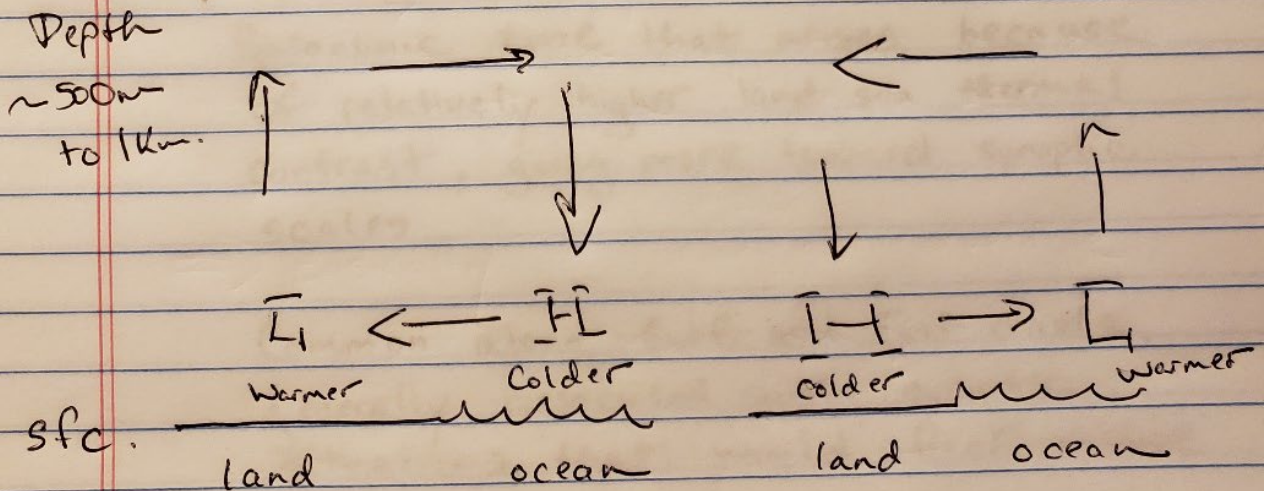 Depth
~500m
to 1Km.
L H H L
warmer Colder colder warmer
sfc.
land ocean land ocean